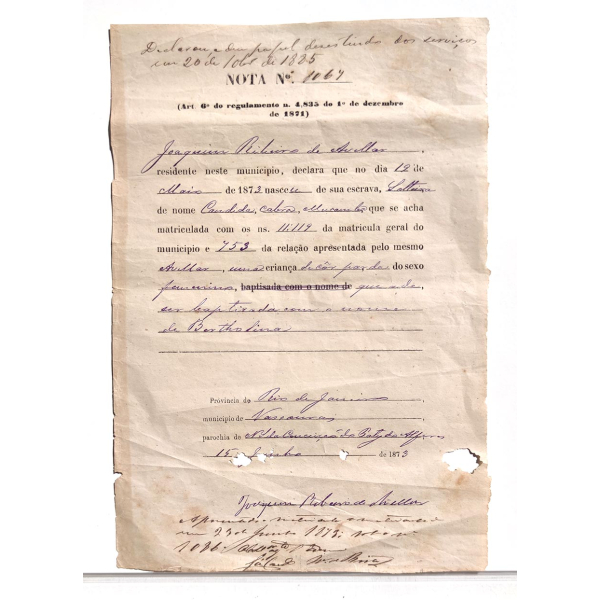 Declarou e um papel desistindo dos serviços
em 20 de de 1885
NOTA Nº. 1067
(Art. 6º do regulamento n. 4,835 do 1º de dezembro
de 1871)
Joaquim Ribeiro de Avellar
residente neste município, declara que no dia 12 de
Maio de 1873 nasceu de sua escrava, Solteira
de nome Candida, Cabra, que se acha
matriculada com os ns. 11.119 da matricula geral do
municipio e 753 da relação apresentada pelo mesmo
Avellar, uma criança de côr parda do sexo
feminino, baptisada com o nome de que ha de
ser baptizada com o nome
de Bertholina
Provincia do Rio de Janeiro
municipio de Vassouras
parochia de N. S. da Conceição do Paty do Alferes
15 Junho de 1873
Joaquim Ribeiro de Avellar
Apresentado
em 23 de Junho 1873;
1086.